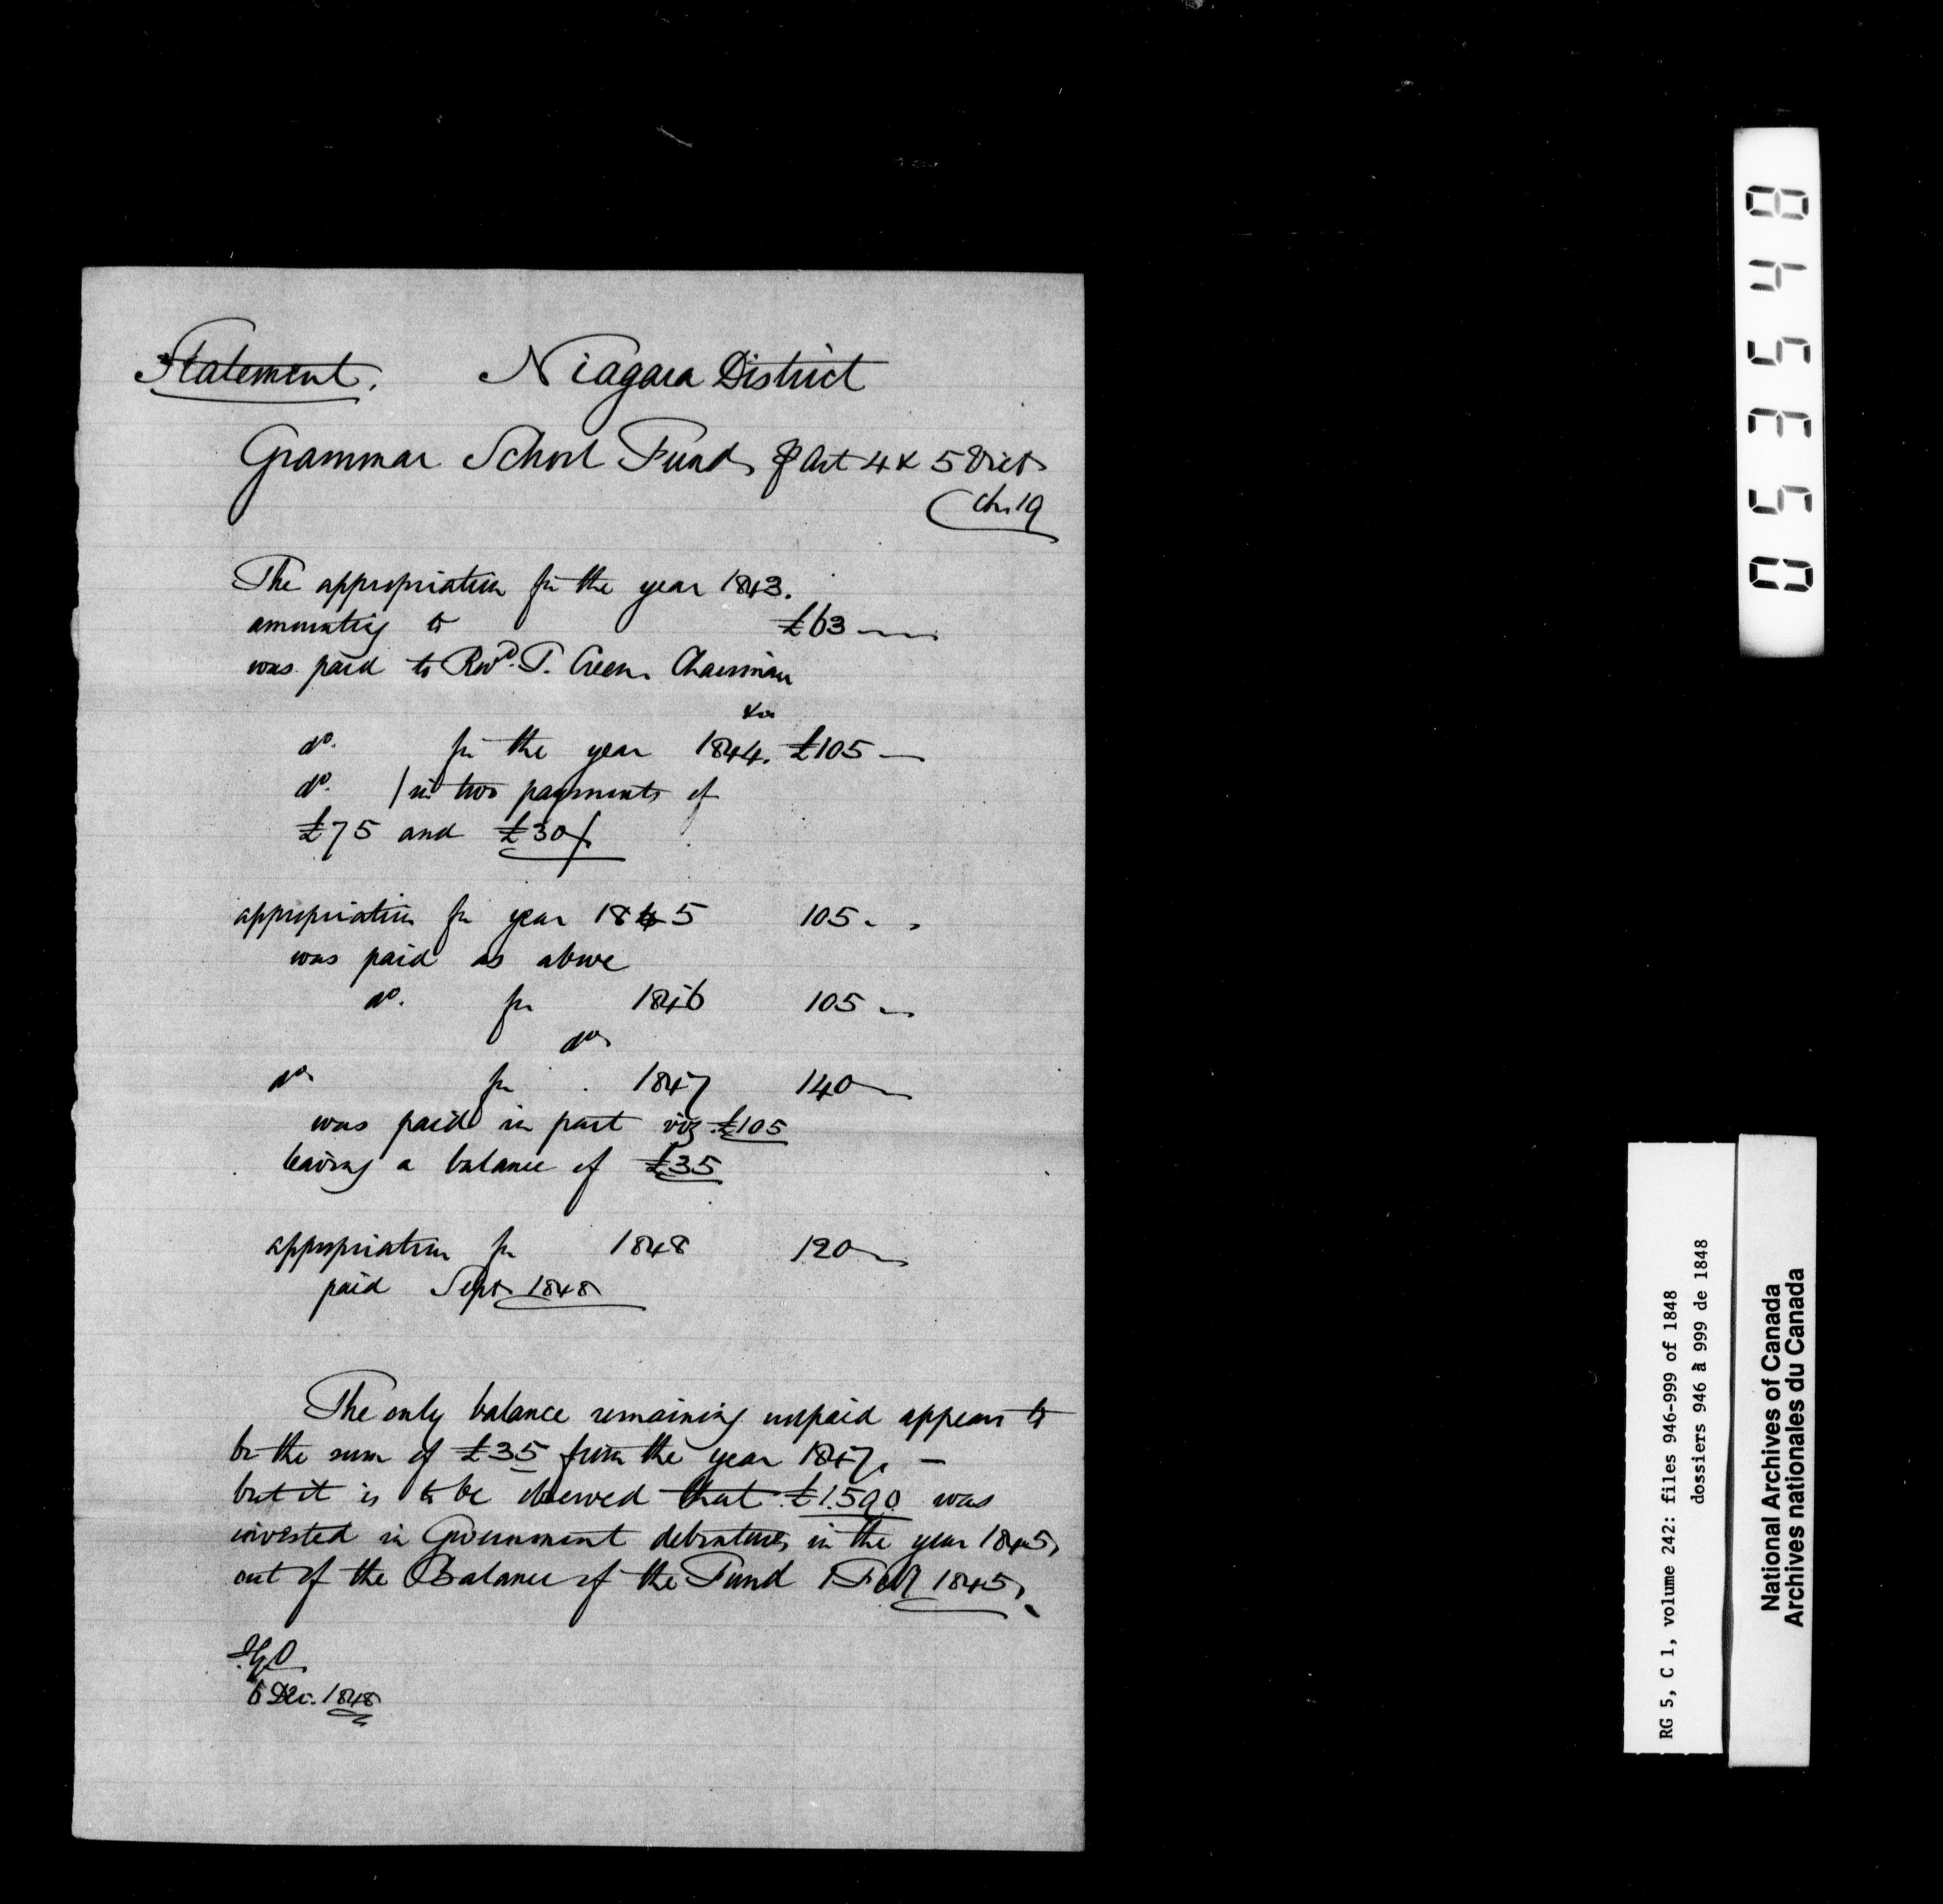 Statement. Niagara District
Grammar School Fund, ⅌ Act 4 & 5 Vict
Ch. 19
The appropriation for the year 1843.
amounting to £63 — —
was paid to Revd. T. Creen Chairman
&c
do. for the year 1844. £105 —
do. / in two payments of
£75 and £30 /
appropriation for year 1845 105 - -
was paid as above
do. for 1846 105 —
do
do for 1847 140 —
was paid in part viz £105
leaving a balance of £35
appropriation for 1848 120 —
paid Sept 1848
The only balance remaining unpaid appears to
be the sum of £35 from the year 1847. —
but it is to be observed that £1590 was
invested in Government debentures in the year 1845,
out of the Balance of the Fund 1 Feb 1845.
I.G.O
6 Dec. 1848
053548
RG 5, C 1, volume 242: files 946-999 of 1848
dossiers 946 à 999 de 1848
National Archives of Canada
Archives nationales du Canada